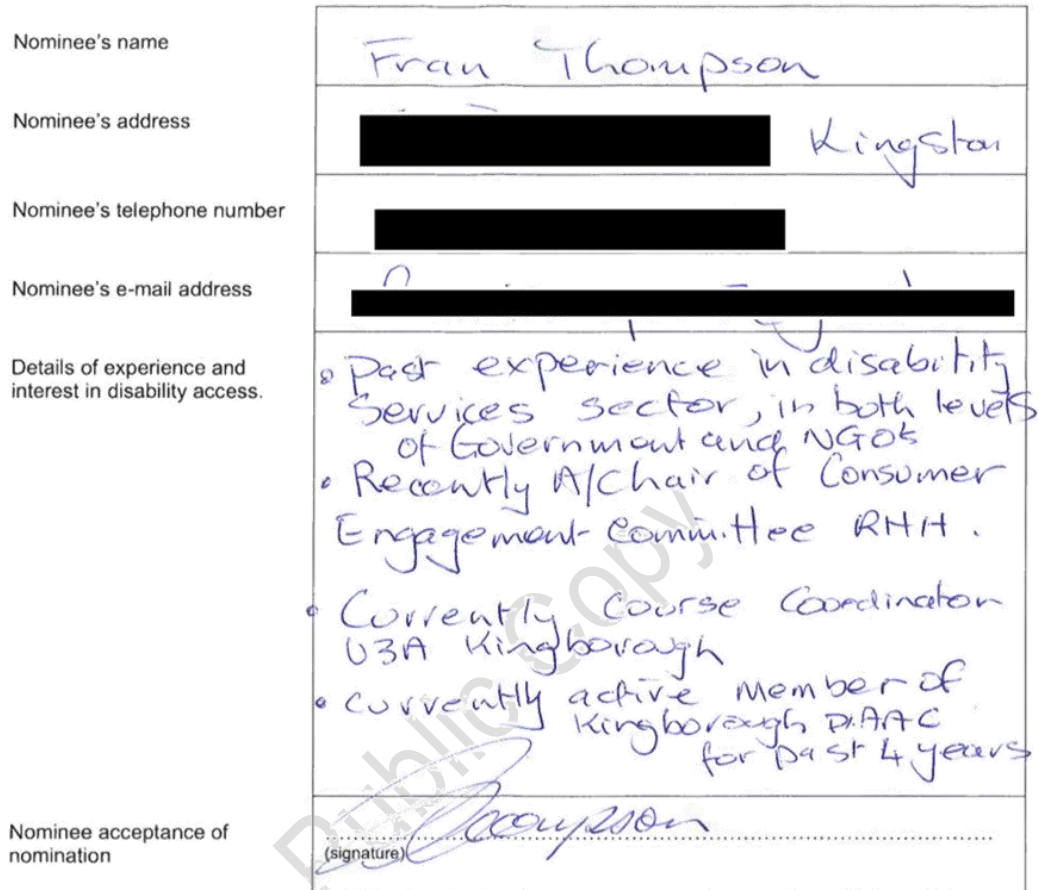 Nominee's name
Fran Thompson
Nominee's address
Kingston
Nominee's telephone number
Nominee's e-mail address
Details of experience and
interest in disability access.
• Past experience in disability
Services sector, in both levels
of Government and NGO's
• Recently A/Chair of Consumer
Engagement Committee RHH.
• Currently Course Coordinator
U3A Kingborough
• Currently active member of
Kingborough DAAC
for past 4 years
Nominee acceptance of
nomination
Thompson
(signature)
Public Copy